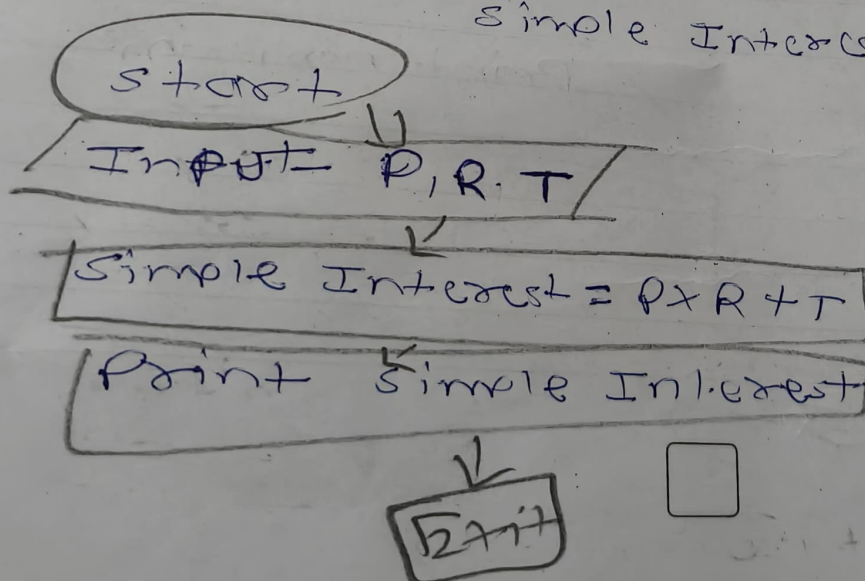 Simple Interes
Start
Input P, R. T
Simple Interest = P x R + T
Print Simple Interest
Exit